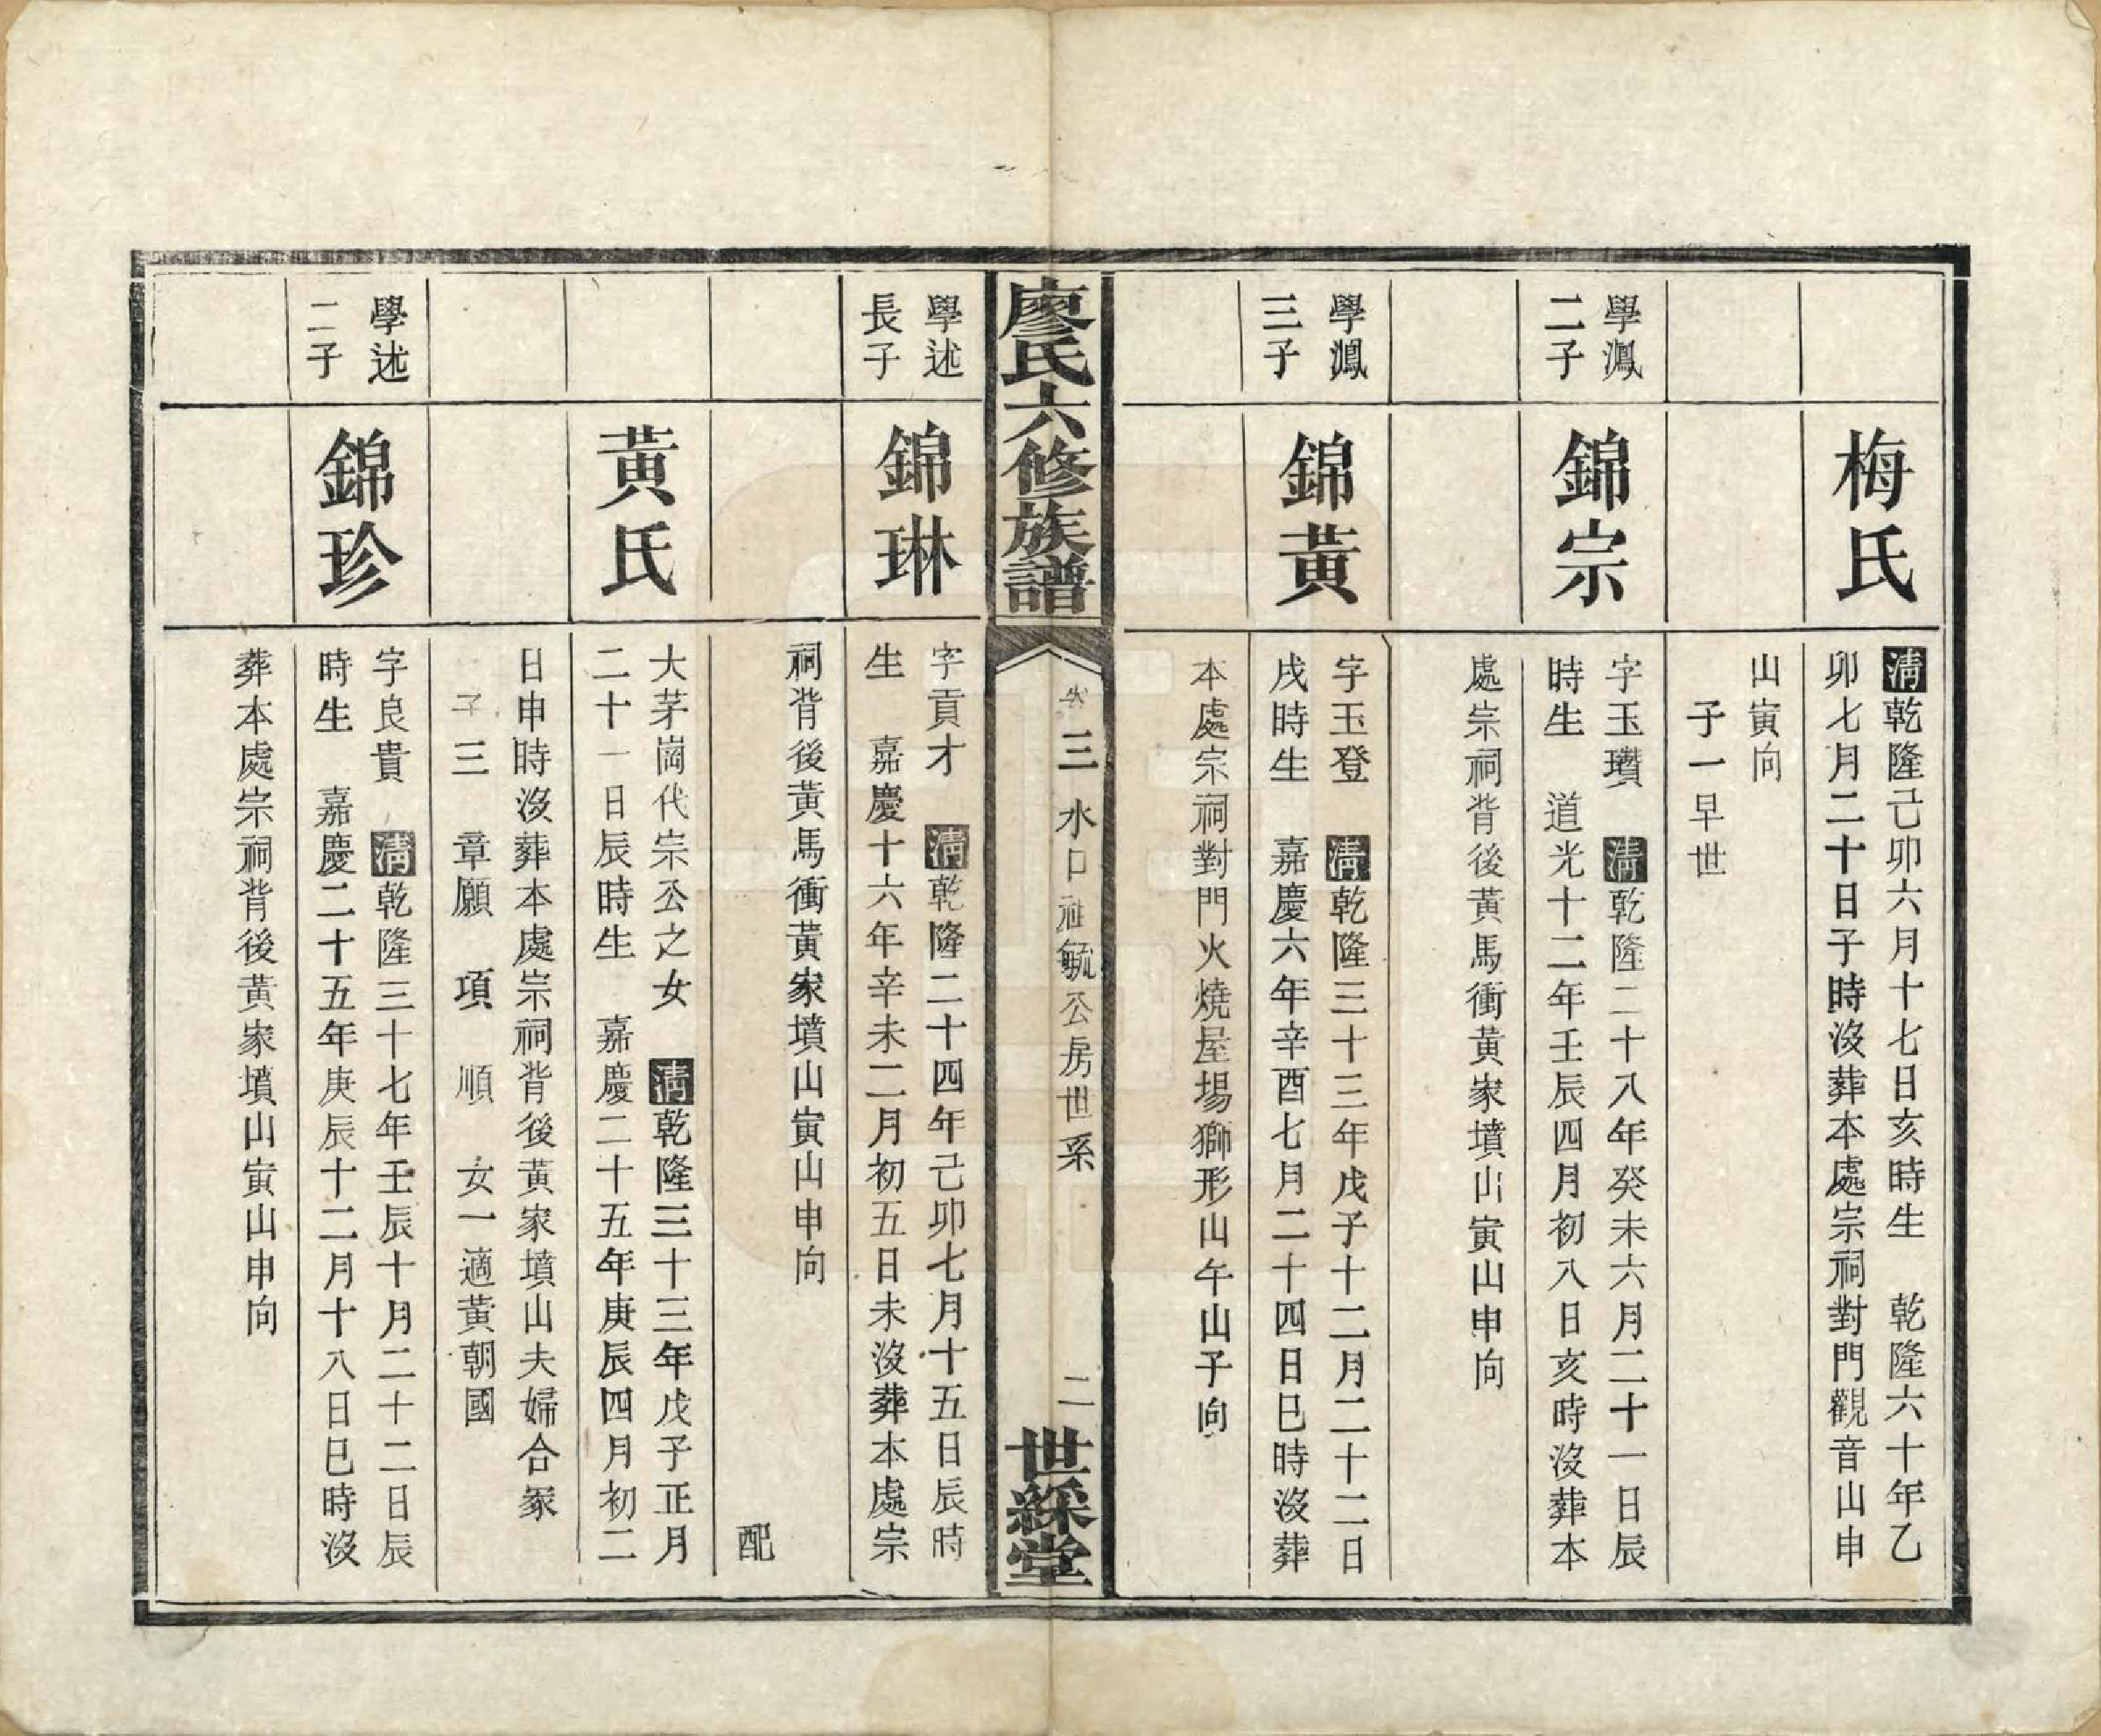 梅氏
清乾隆己卯六月十七日亥時生　乾隆六十年乙
卯七月二十日子時沒葬本處宗祠對門觀音山申
山寅向
子一早世
學鳳
二子
錦宗
字玉瓚　清乾隆二十八年癸未六月二十一日辰
時生　道光十二年壬辰四月初八日亥時沒葬本
處宗祠背後黃馬衝黃家墳山寅山申向
學鳳
三子
錦黃
字玉登　清乾隆三十三年戊子十二月二十二日
戌時生　嘉慶六年辛酉七月二十四日巳時沒葬
本處宗祠對門火燒屋場獅形山午山子向
廖氏六修族譜
卷三水口祖毓公房世系
二
世綵堂
學述
長子
錦琳
字貢才　清乾隆二十四年己卯七月十五日辰時
生　嘉慶十六年辛未二月初五日未沒葬本處宗
祠背後黃馬衝黃家墳山寅山申向
配
黃氏
大茅崗代宗公之女　清乾隆三十三年戊子正月
二十一日辰時生　嘉慶二十五年庚辰四月初二
日申時沒葬本處宗祠背後黃家墳山夫婦合冢
子三　章願　項　順　女一適黃朝國
學述
二子
錦珍
字良貴　清乾隆三十七年壬辰十月二十二日辰
時生　嘉慶二十五年庚辰十二月十八日巳時沒
葬本處宗祠背後黃家墳山寅山申向